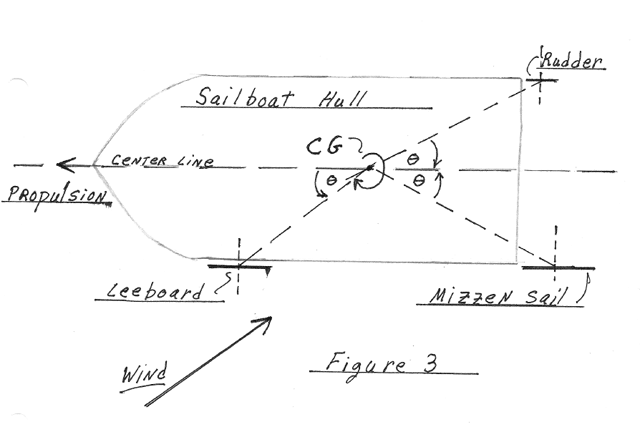 Rudder
Sailboat Hull
CG
CENTER LINE
θ
θ
θ
PROPULSION
Leeboard
MIZZEN Sail
WIND
Figure 3